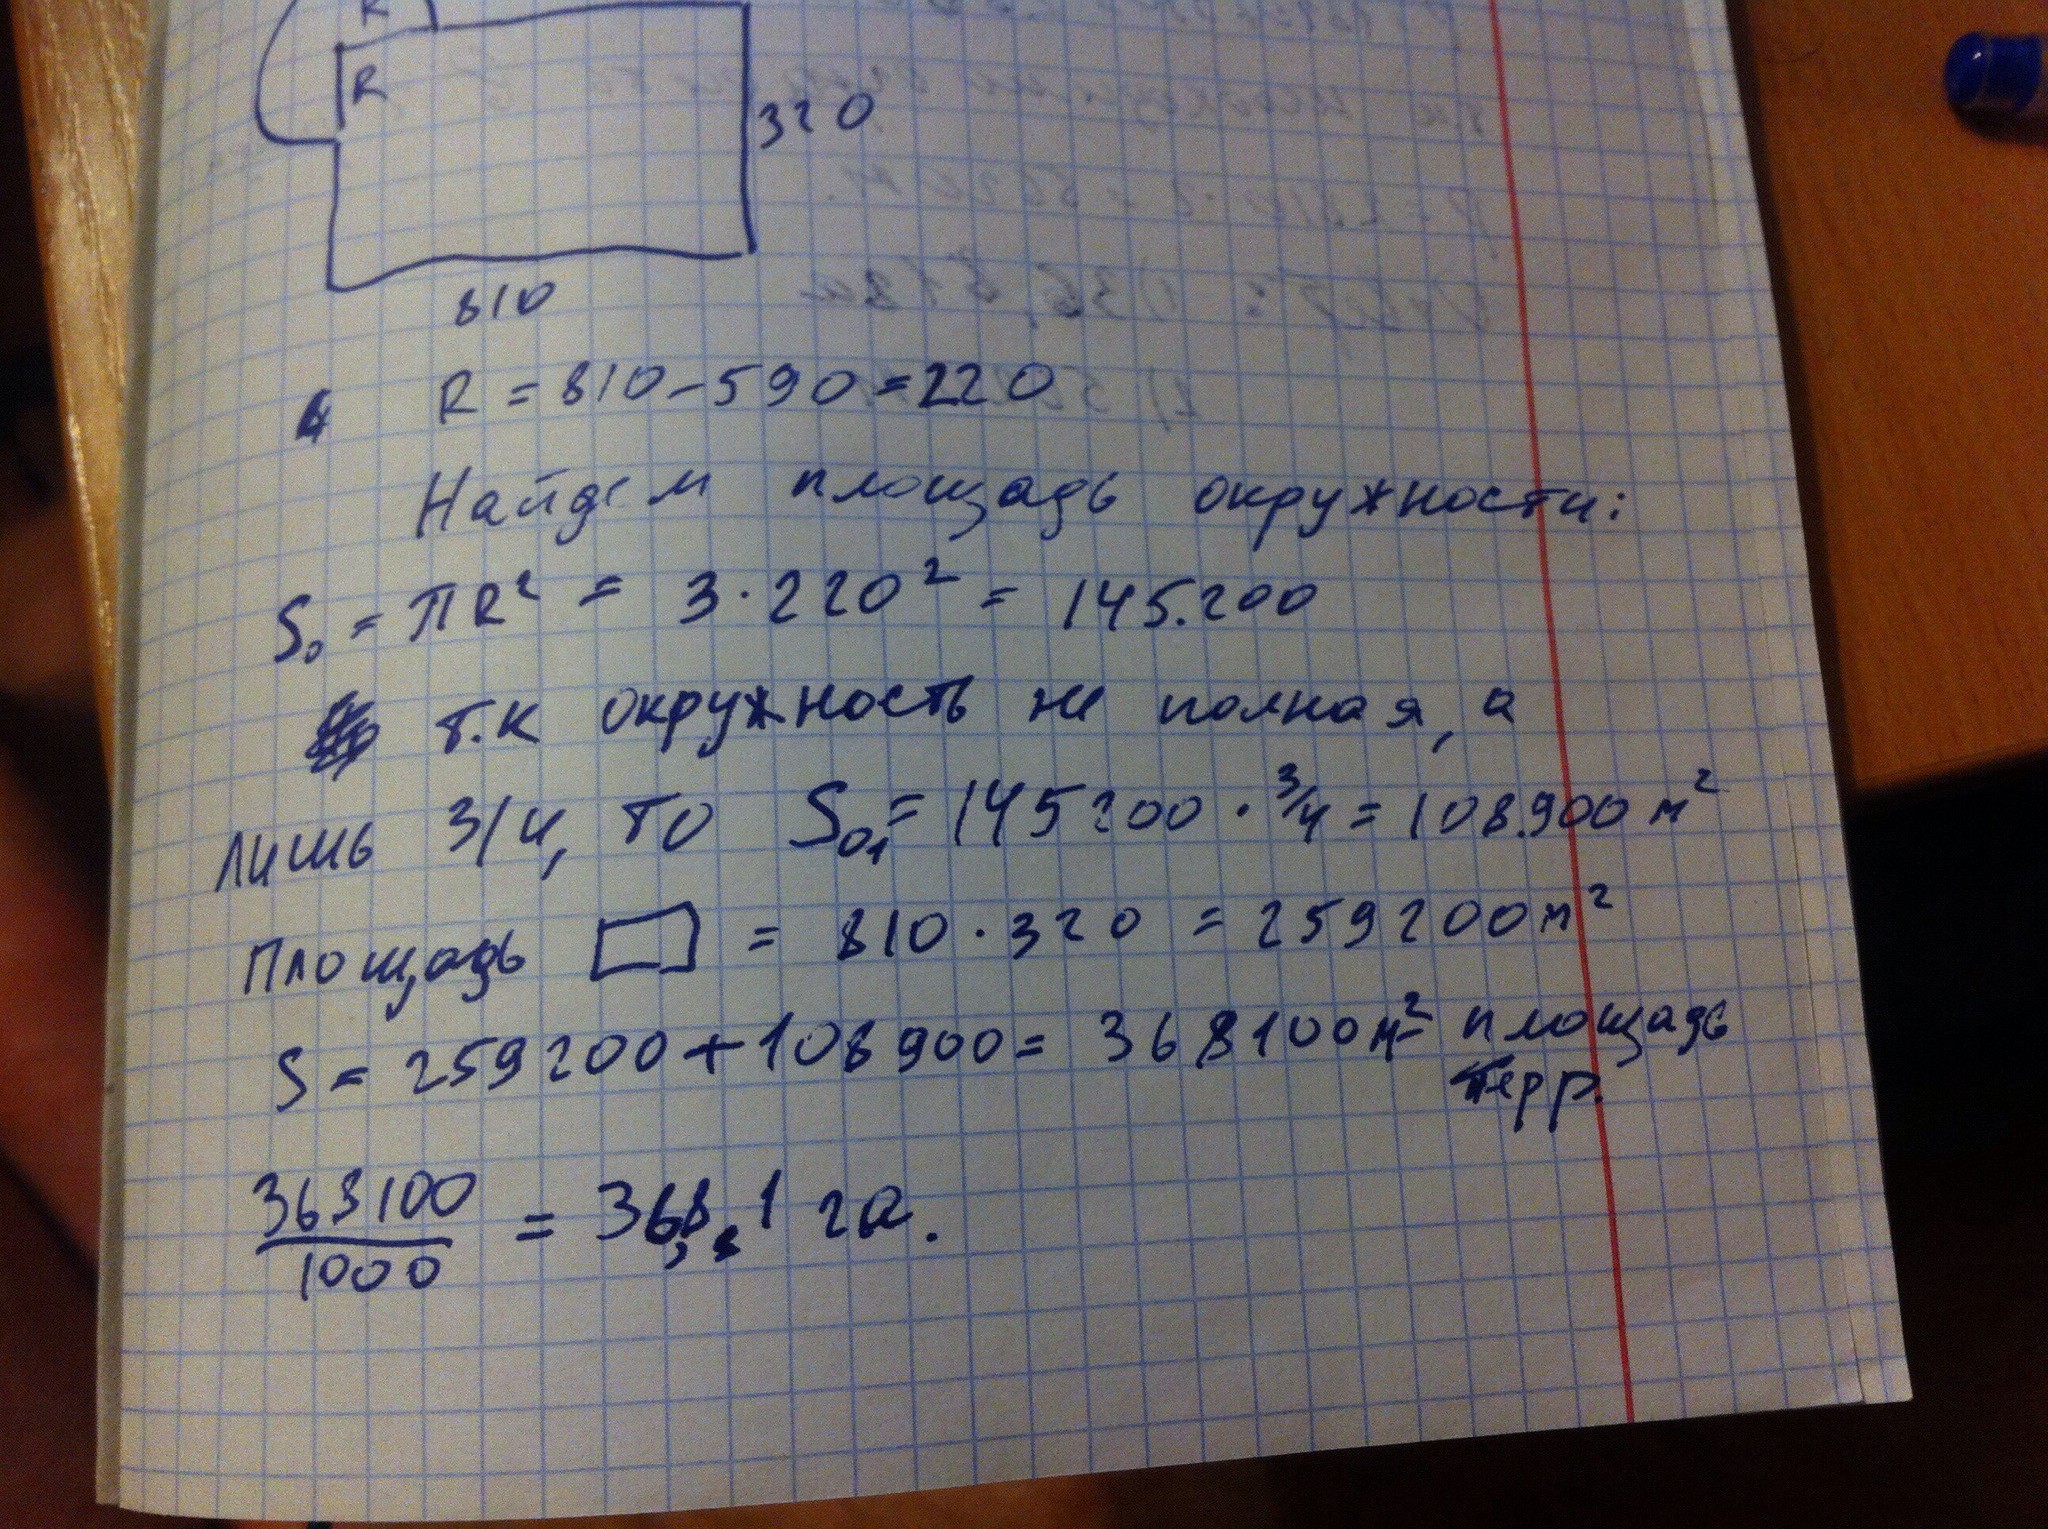 R
R
320
810
R = 810 - 590 = 220
Найдем площадь окружности:
S₀ = πR² = 3 · 220² = 145.200
т.к окружность не полная, а
лишь 3/4, то S₀₁ = 145200 · 3/4 = 108.900 м²
площадь ▭ = 810 · 320 = 259200 м²
S = 259200 + 108900 = 368100 м² площадь
терр.
368100
1000
= 36,8,1 га.